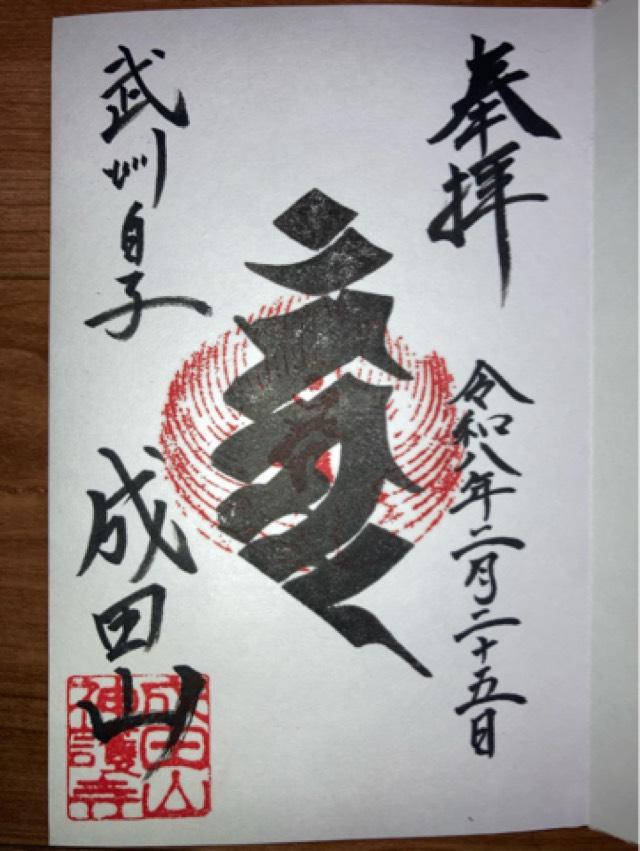 奉拝
令和八年二月二十五日
武州白子
成田山
成田山
神護寺